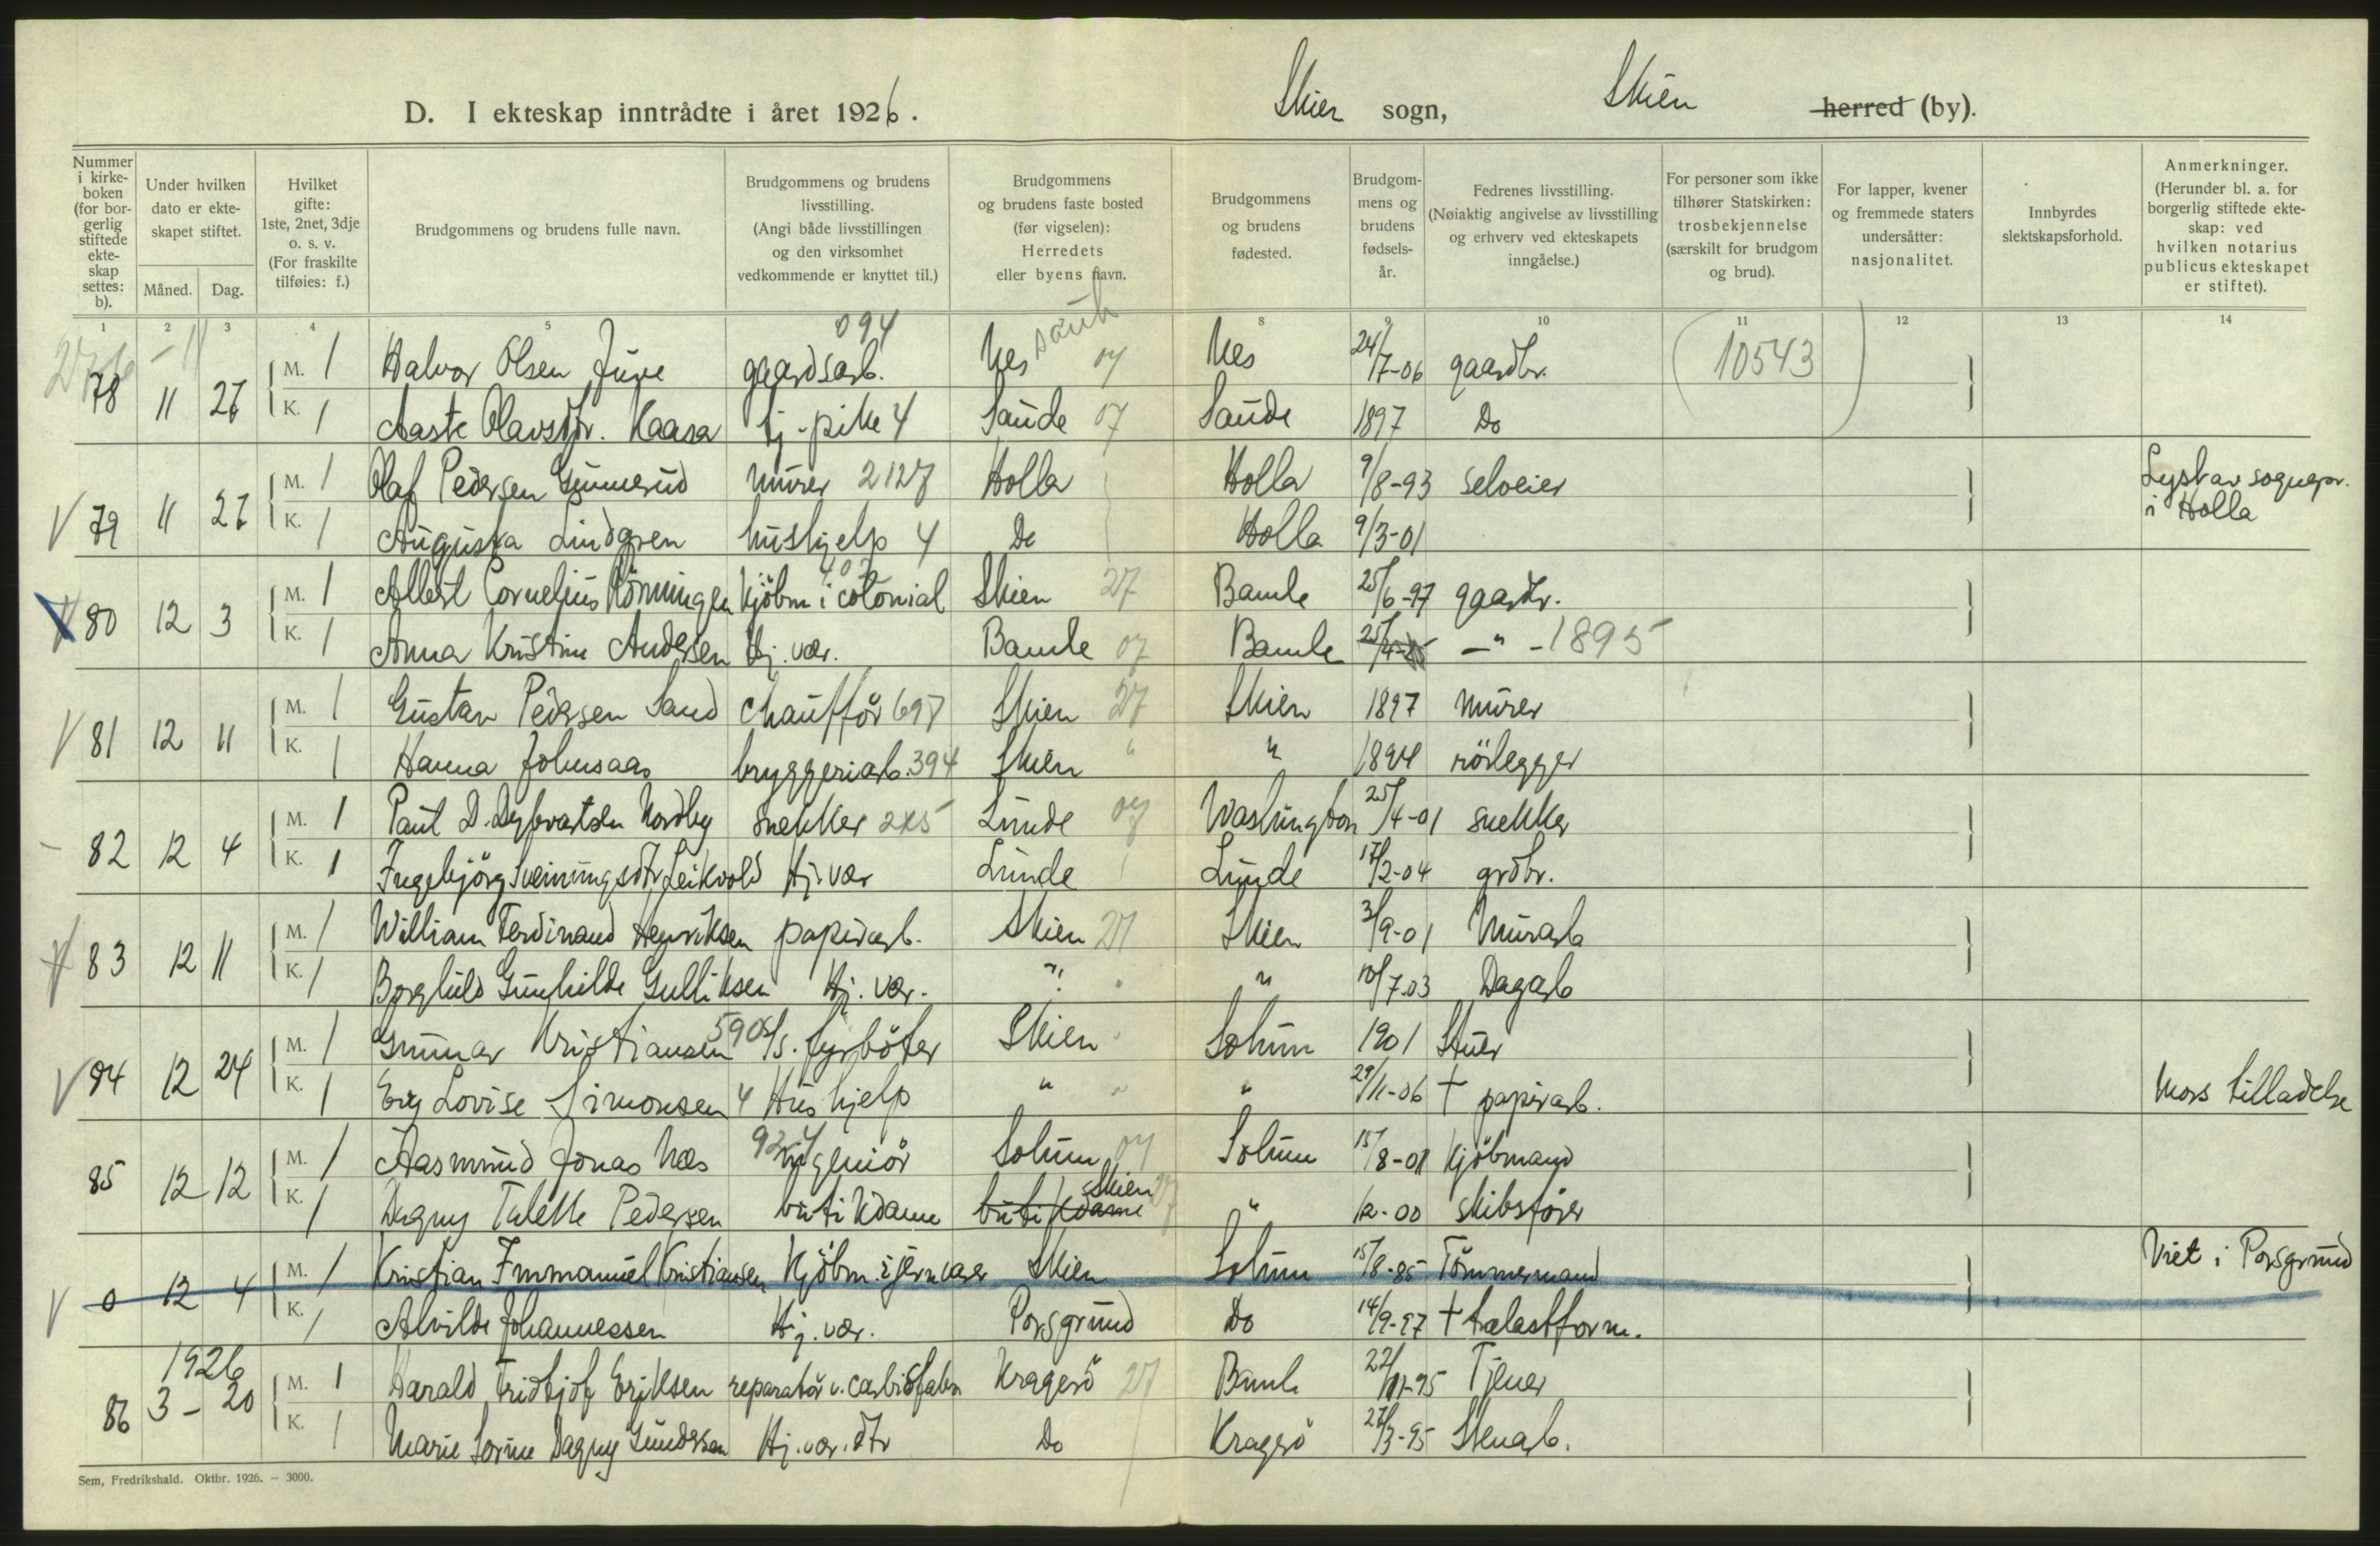 D. I ekteskap inntrådte i året 1926. Skien sogn, Skien herred (by).
Nummer i kirkeboken (for borgerlig stiftede ekteskap settes: b).
Under hvilken dato er ekteskapet stiftet.
Måned. Dag.
Hvilket gifte: 1ste, 2net, 3dje o. s. v. (For fraskilte tilføies: f.)
Brudgommens og brudens fulle navn.
Brudgommens og brudens livsstilling. (Angi både livsstillingen og den virksomhet vedkommende er knyttet til.)
Brudgommens og brudens faste bosted (før vigselen): Herredets eller byens navn.
Brudgommens og brudens fødested.
Brudgommens og brudens fødselsår.
Fedrenes livsstilling. (Nøiaktig angivelse av livsstilling og erhverv ved ekteskapets inngåelse.)
For personer som ikke tilhører Statskirken: trosbekjennelse (særskilt for brudgom og brud).
For lapper, kvener og fremmede staters undersåtter: nasjonalitet.
Innbyrdes slektskapsforhold.
Anmerkninger. (Herunder bl. a. for borgerlig stiftede ekteskap: ved hvilken notarius publicus ekteskapet er stiftet).
1 2 3 4 5 8 9 10 11 12 13 14
78 11 27 M. 1 Halvor Olsen Juve gaardsarb. 094 Nes 07 Nes 24/7-06 gaardbr. (10543)
K. 1 Aaste Olavsdtr. Kaasa tj-pike 4 Saude 07 Saude 1897 Do
V 79 11 27 M. 1 Olaf Pedersen Gunnerud murer 2127 Holla Holla 9/8-93 selveier Lyst av sognepr. i Holla
K. 1 Augusta Lindgren hushjelp 4 Do Holla 9/3-01
80 12 3 M. 1 Albert Cornelius Rönningen Kjöbm i colonial 407 Skien 27 Bamle 25/6-97 gaardbr.
K. 1 Anna Kristine Andersen Hj. vær. Bamle 07 Bamle 25/4-85 -"- 1895
V 81 12 11 M. 1 Gustav Pedersen Sand chaufför 697 Skien 27 Skien 1897 murer
K. 1 Hanna Johnsaas bryggeriarb. 394 Skien " " 1894 rörlegger
82 12 4 M. 1 Paul D. Dybvartsen Nordby snekker 285 Lunde 07 Washington 25/4-01 snekker
K. 1 Ingebjörg Sveinungsdtr Leikvold Hj. vær Lunde Lunde 17/2-04 grdbr.
83 12 11 M. 1 William Ferdinand Henriksen papirarb. Skien 27 Skien 3/9-01 Murarb
K. 1 Borghild Gunhilde Gulliksen Hj. vær. " " 10/7-03 Dagarb
V 84 12 24 M. 1 Gunnar Kristiansen 590 d/s. fyrböter Skien Solum 1901 Stuer
K. 1 Evy Lovise Simonsen 4 Hushjelp " " 29/11-06 † papirarb. Mors tilladelse
85 12 12 M. 1 Aasmund Jonas Næs 924 ingeniör Solum 07 Solum 15/8-01 Kjöbmand
K. 1 Dagny Talette Pedersen butikdame butikdame Skien 27 " 12-00 skibsfører
V 0 12 4 M. 1 Kristian Immanuel Kristiansen Kjöbm. i jernvarer Skien Solum 15/8-85 Tömmermand Viet i Porsgrund
K. 1 Alvilde Johannessen Hj. vær. Porsgrund Do 14/9-97 † trælastform.
86 1926 3 - 20 M. 1 Harald Fridtjof Eriksen reparatör v. carbidfabr Kragerö 27 Bamle 22/11-95 Tjener
K. 1 Marie Sorine Dagny Gundersen Hj. vær. dtr Do Kragerö 27/3-95 Stenarb.
Sem, Fredrikshald. Oktbr. 1926. — 3000.